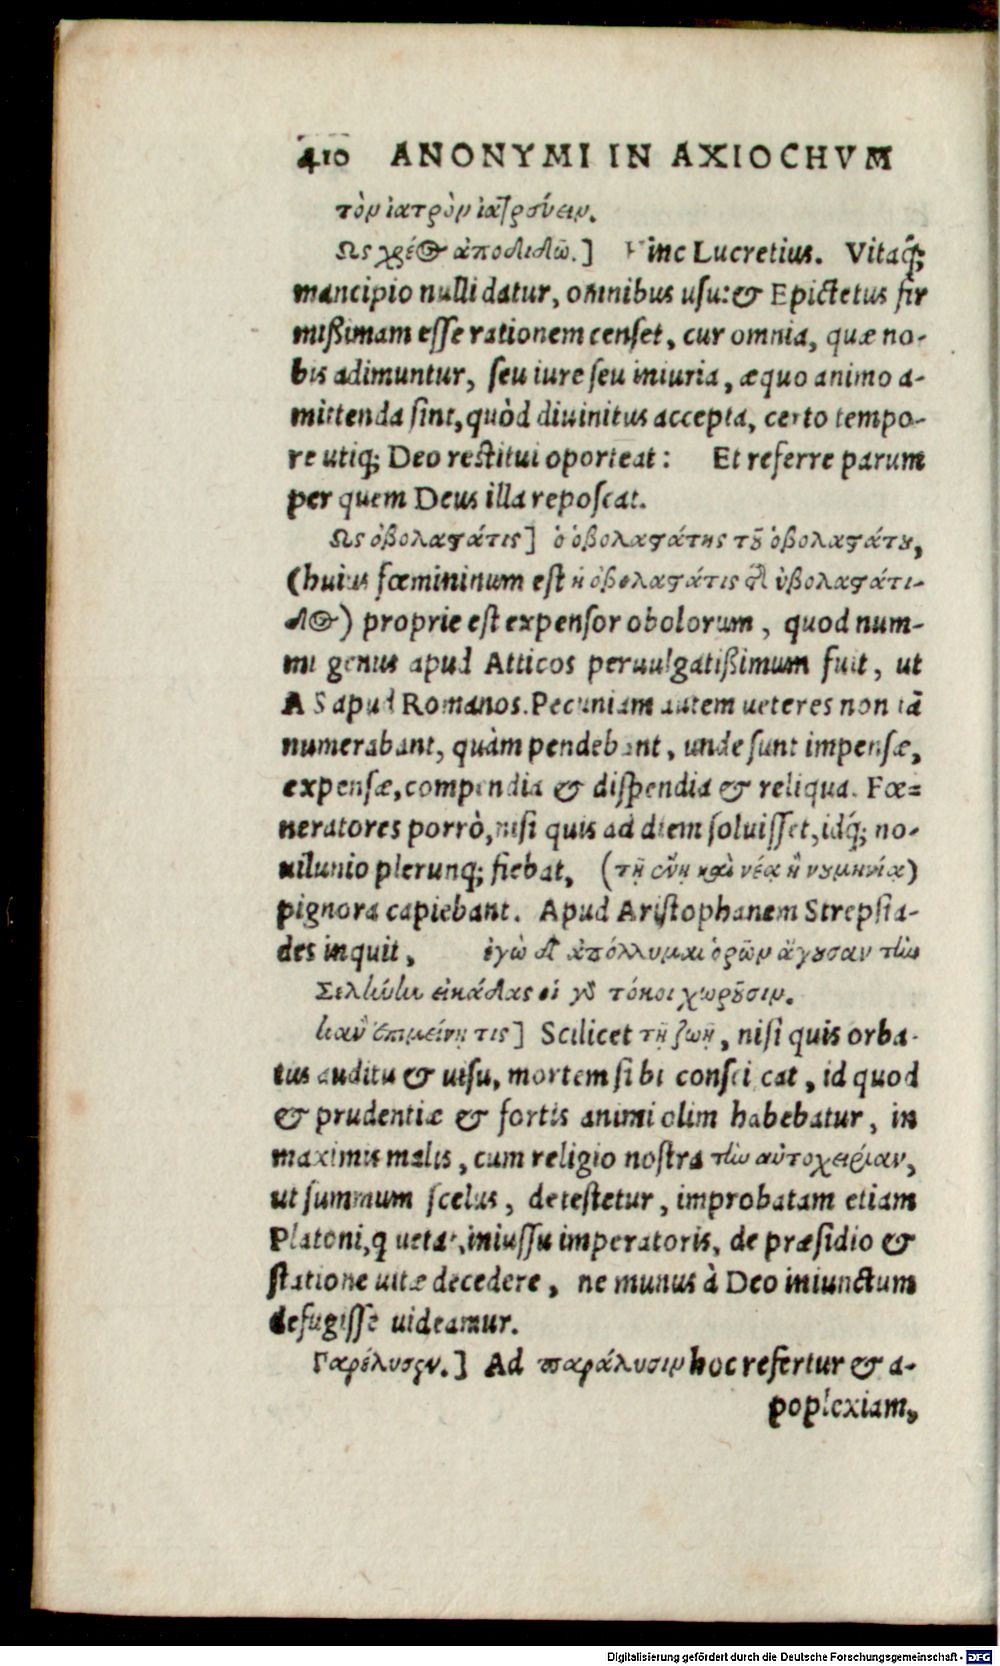 410 ANONYMI IN AXIOCHVM
τὸν ἰατρὸν ἰατρεύειν.
Ως χρέος ἀποδιδῶ.] Hinc Lucretius. Vitaq́;
mancipio nulli datur, omnibus usu: & Epictetus fir
mißimam esse rationem censet, cur omnia, quæ no-
bis adimuntur, seu iure seu iniuria, æquo animo a-
mittenda sint, quòd diuinitus accepta, certo tempo-
re utiq; Deo restitui oporteat: Et referre parum
per quem Deus illa reposcat.
Ως ὀβολοστάτις] ὁ ὀβολοστάτης τοῦ ὀβολοστάτου,
(huius fœmininum est ἡ ὀβολοστάτις τῆς ὀβολοστάτι-
δος) proprie est expensor obolorum, quod num-
mi genus apud Atticos peruulgatißimum fuit, ut
AS apud Romanos. Pecuniam autem ueteres non tā
numerabant, quàm pendebant, unde sunt impensæ,
expensæ, compendia & dispendia & reliqua. Fœ=
neratores porrò, nisi quis ad diem soluisset, idq́; no-
uilunio plerunq; fiebat, (τῇ ἕνῃ καὶ νέᾳ ἢ νουμηνίᾳ)
pignora capiebant. Apud Aristophanem Strepsia-
des inquit, ἐγὼ δὲ ἀπόλλυμαι ὁρῶν ἄγουσαν τὴν
Σελήνην εἰκάδας οἱ γὰρ τόκοι χωροῦσιν.
κἂν ἐπιμείνῃ τις] Scilicet τῇ ζωῇ, nisi quis orba-
tus auditu & uisu, mortem sibi consciscat, id quod
& prudentiæ & fortis animi olim habebatur, in
maximis malis, cum religio nostra τὴν αὐτοχειρίαν,
ut summum scelus, detestetur, improbatam etiam
Platoni, q uetat, iniussu imperatoris, de præsidio &
statione uitæ decedere, ne munus à Deo iniunctum
defugisse uideamur.
Παρέλυσεν.] Ad παράλυσιν hoc refertur & a-
poplexiam,
Digitalisierung gefördert durch die Deutsche Forschungsgemeinschaft - DFG